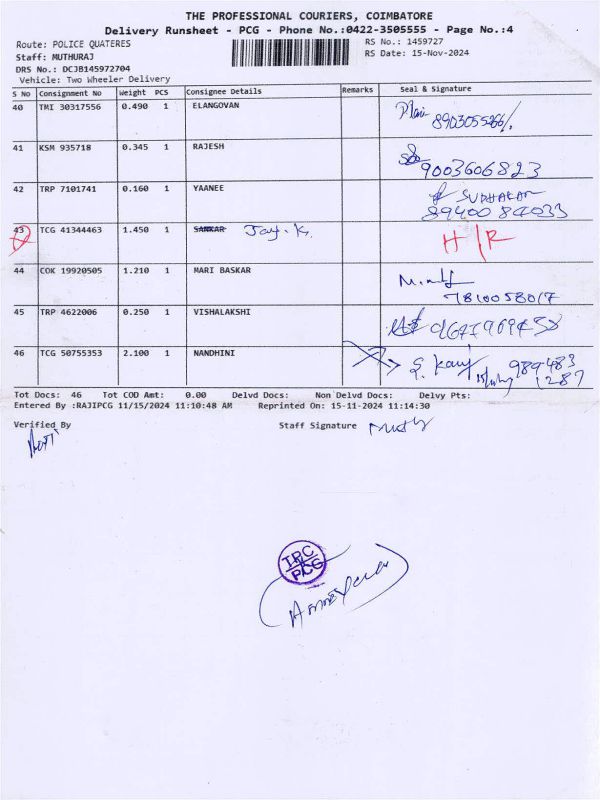 THE PROFESSIONAL COURIERS, COIMBATORE
Delivery Runsheet - PCG - Phone No.:0422-3505555 - Page No.:4
Route: POLICE QUATERES RS No.: 1459727
Staff: MUTHURAJ RS Date: 15-Nov-2024
DRS No.: DCJB145972704
Vehicle: Two Wheeler Delivery
S No Consignment No Weight PCS Consignee Details Remarks Seal & Signature
40 TMI 30317556 0.490 1 ELANGOVAN
41 KSM 935718 0.345 1 RAJESH
9003606823
42 TRP 7101741 0.160 1 YAANEE
SUDHAKAR
8940084033
43 TCG 41344463 1.450 1 SANKAR Jay.K. H/R
44 COK 19920505 1.210 1 MARI BASKAR
7810058017
45 TRP 4622006 0.250 1 VISHALAKSHI
46 TCG 50755353 2.100 1 NANDHINI
989483
1287
Tot Docs: 46 Tot COD Amt: 0.00 Delvd Docs: Non Delvd Docs: Delvy Pts:
Entered By :RAJIPCG 11/15/2024 11:10:48 AM Reprinted On: 15-11-2024 11:14:30
Verified By Staff Signature
IRC
PCG